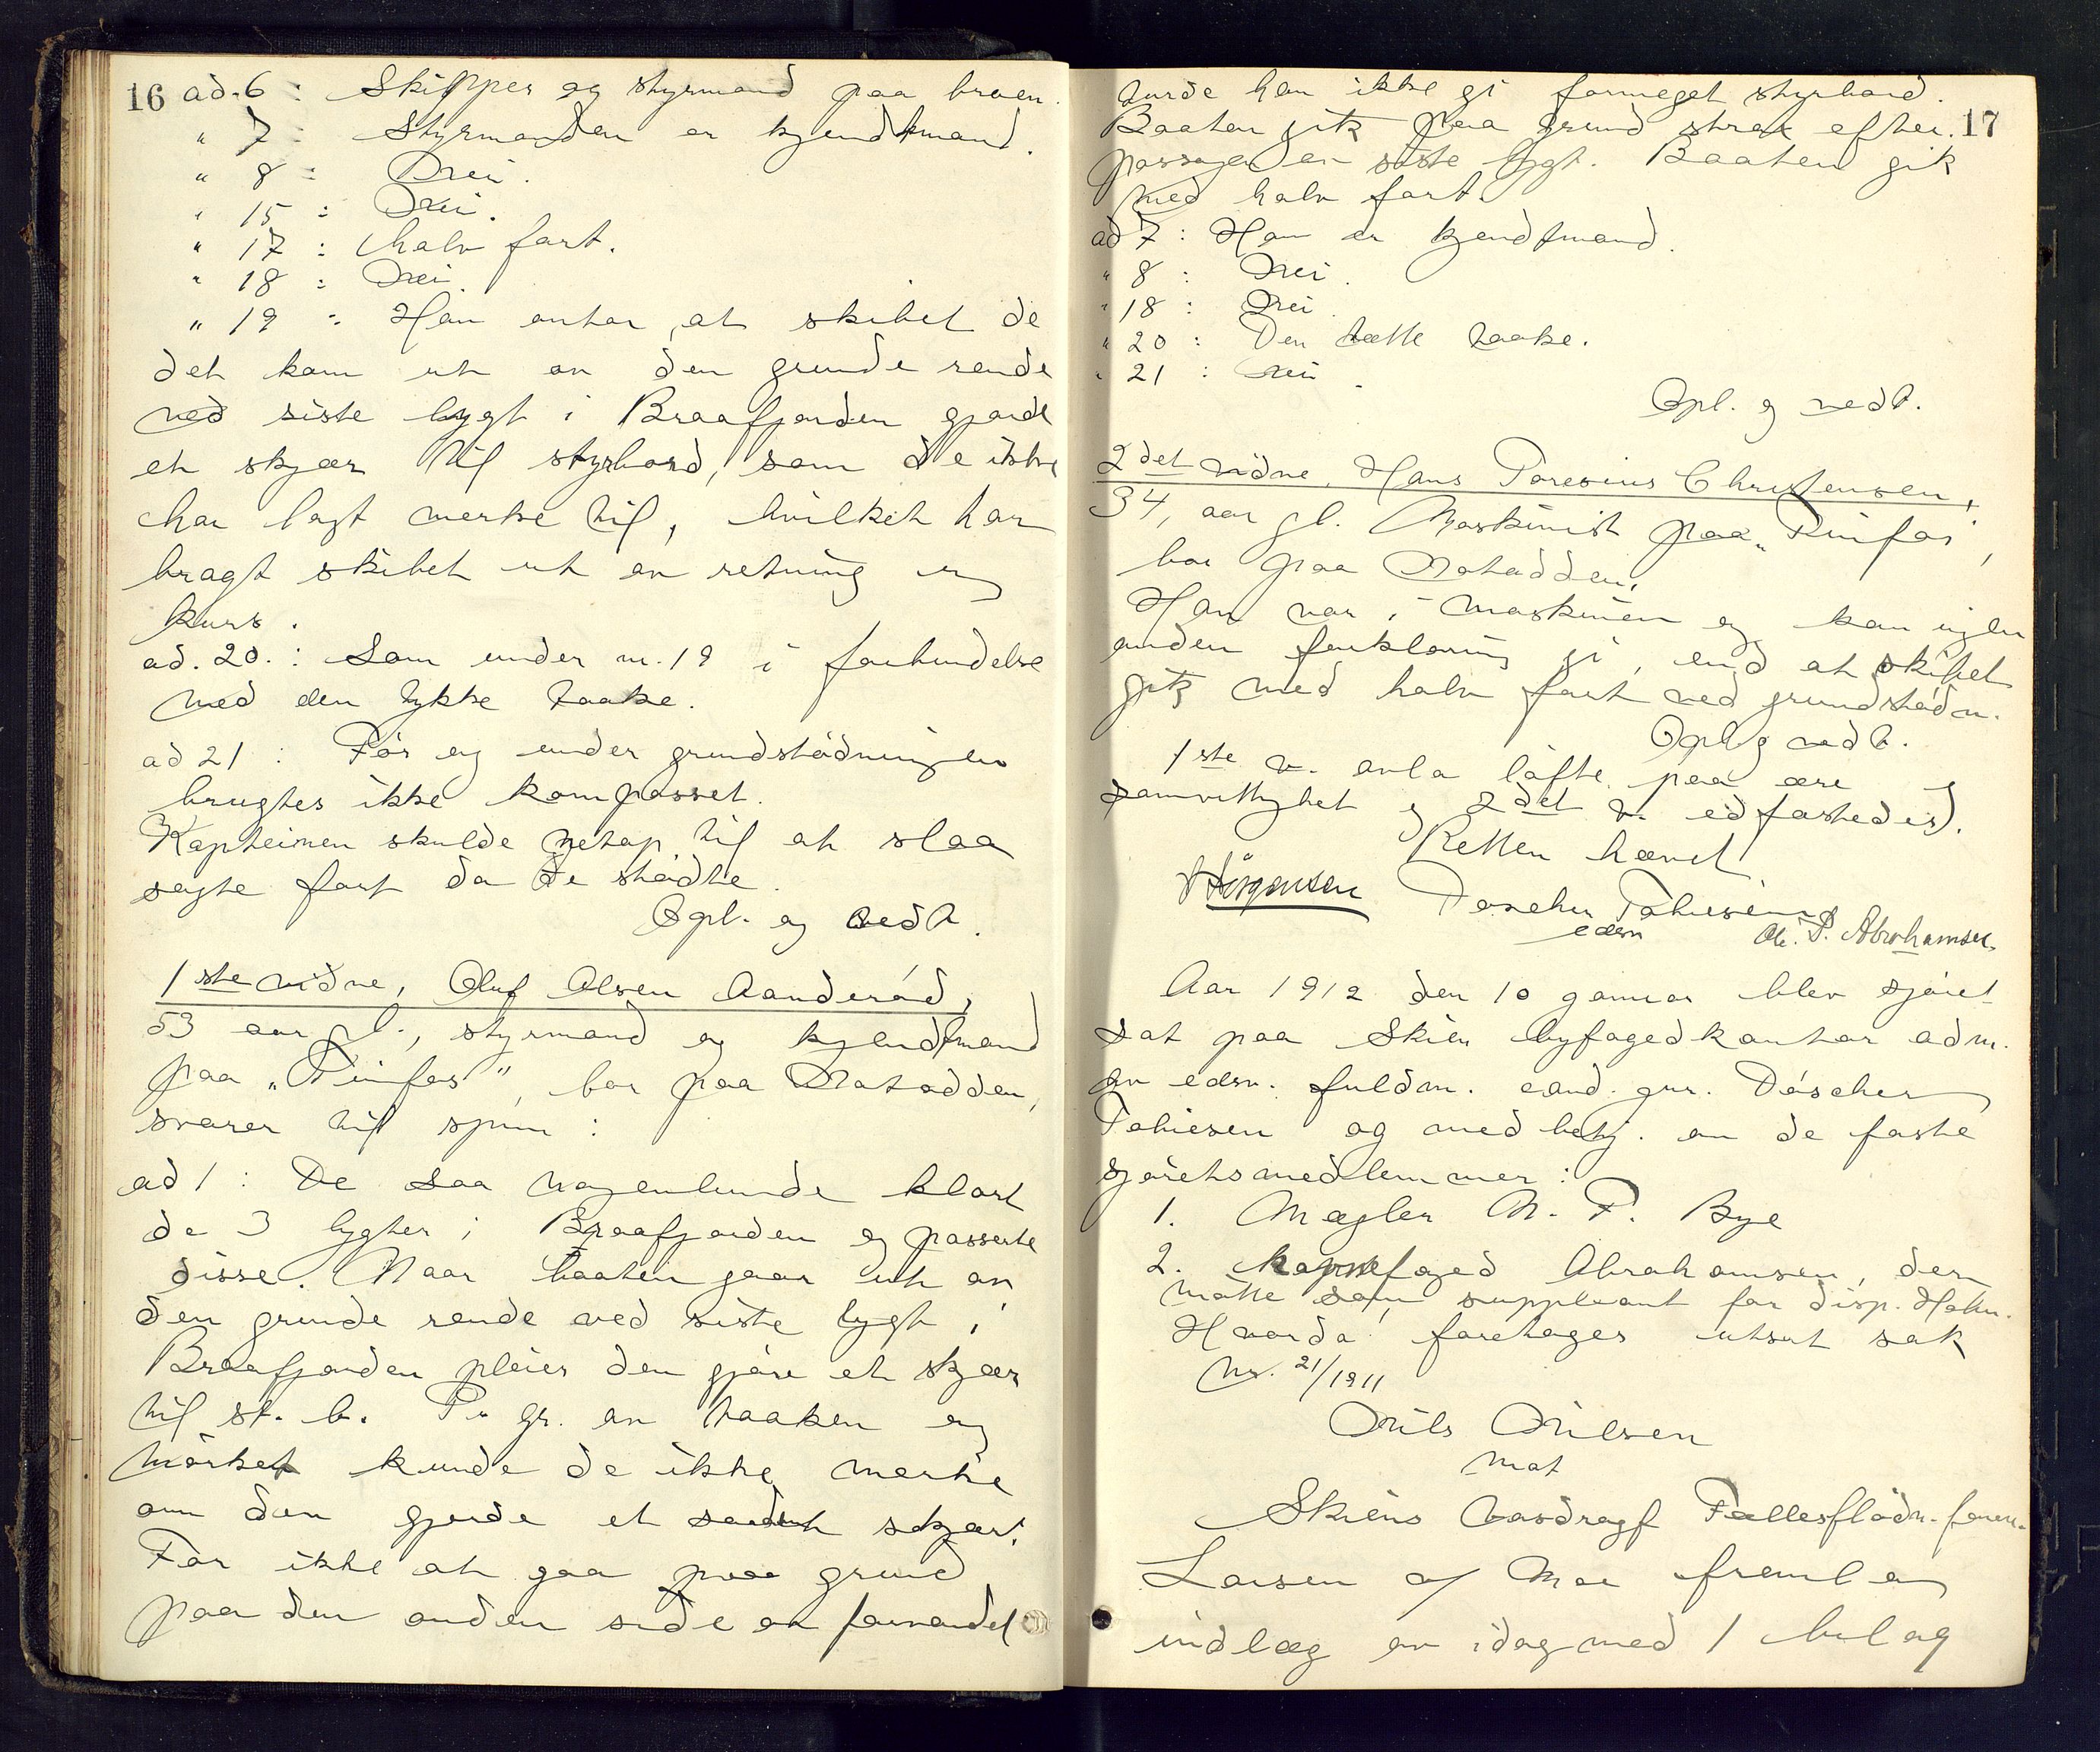 16 ad. 6 : Skipper og styrmand paa broen.
" 7 : Styrmanden er kjendtmand.
" 8 : Nei.
" 15 : Nei.
" 17 : halv fart.
" 18 : Nei.
" 19 : Han antar, at skibet da
det kom ut av den grunde rende
ved siste lygt i Braafjorden gjorde
et skjær til styrbord, som de ikke
har lagt merke til, hvilket har
bragt skibet ut av retning og
kurs.
ad. 20. : Som under nr. 19 i forbindelse
med den tykke taake.
ad 21 : Før og under grundstødningen
brugtes ikke kompasset.
Kapteinen skulde netop til at slaa
sagte fart da de stødte.
Opl. og vedt.
1ste vidne, Oluf Olsen Aanderød,
53 aar gl., styrmand og kjendtmand
paa "Rinfos", bor paa Notodden,
svarer til spm :
ad 1 : De saa nogenlunde klart
de 3 lygter i Braafjorden og passerte
disse. Naar baaten gaar ut av
den grunde rende ved siste lygt i
Braafjorden pleier den gjøre et skjær
til st. b. Pr. gr. av taaken og
mørket kunde de ikke merke
om den gjorde et saadant skjær.
For ikke at gaa paa grund
paa den anden side av farvandet
turde han ikke gi formeget styrbord.
Baaten gik paa grund strax efter 17
passagen av siste lygt. Baaten gik
med halv fart.
ad 7 : Han er kjendtmand.
" 8 : Nei.
" 18 : Nei.
" 20 : Den tætte taake.
" 21 : Nei.
Opl. og vedt.
2det vidne, Hans Christensen,
34, aar gl. Maskinist paa "Rinfos",
bor paa Notodden,
Han var i maskinen og kan ingen
anden forklaring gi, end at skibet
gik med halv fart ved grundstødn.
Opl. og vedt.
1ste v. avla løfte paa ære og
samvittighet og 2det v. edfæstedes.
Retten hævet
Jørgensen Døscher Tobiesen
edsv. Ole. P. Abrahamsen
Aar 1912 den 10 januar blev sjøret
sat paa Skien byfogedkontor adm.
av edsv. fuldm. cand. jur. Døscher
Tobiesen og med betj. av de faste
sjøretsmedlemmer :
1. Mægler M. P. Bye
2. havnefoged Abrahamsen, der
møtte som suppleant for disp. Holm.
Hvorda foretoges utsat sak
nr. 21/1911
Nils Nilsen
mot
Skiens Vasdrags Fællesflødn. foren.
Larsen og Moe fremla
indlæg av idag med 1 bilag